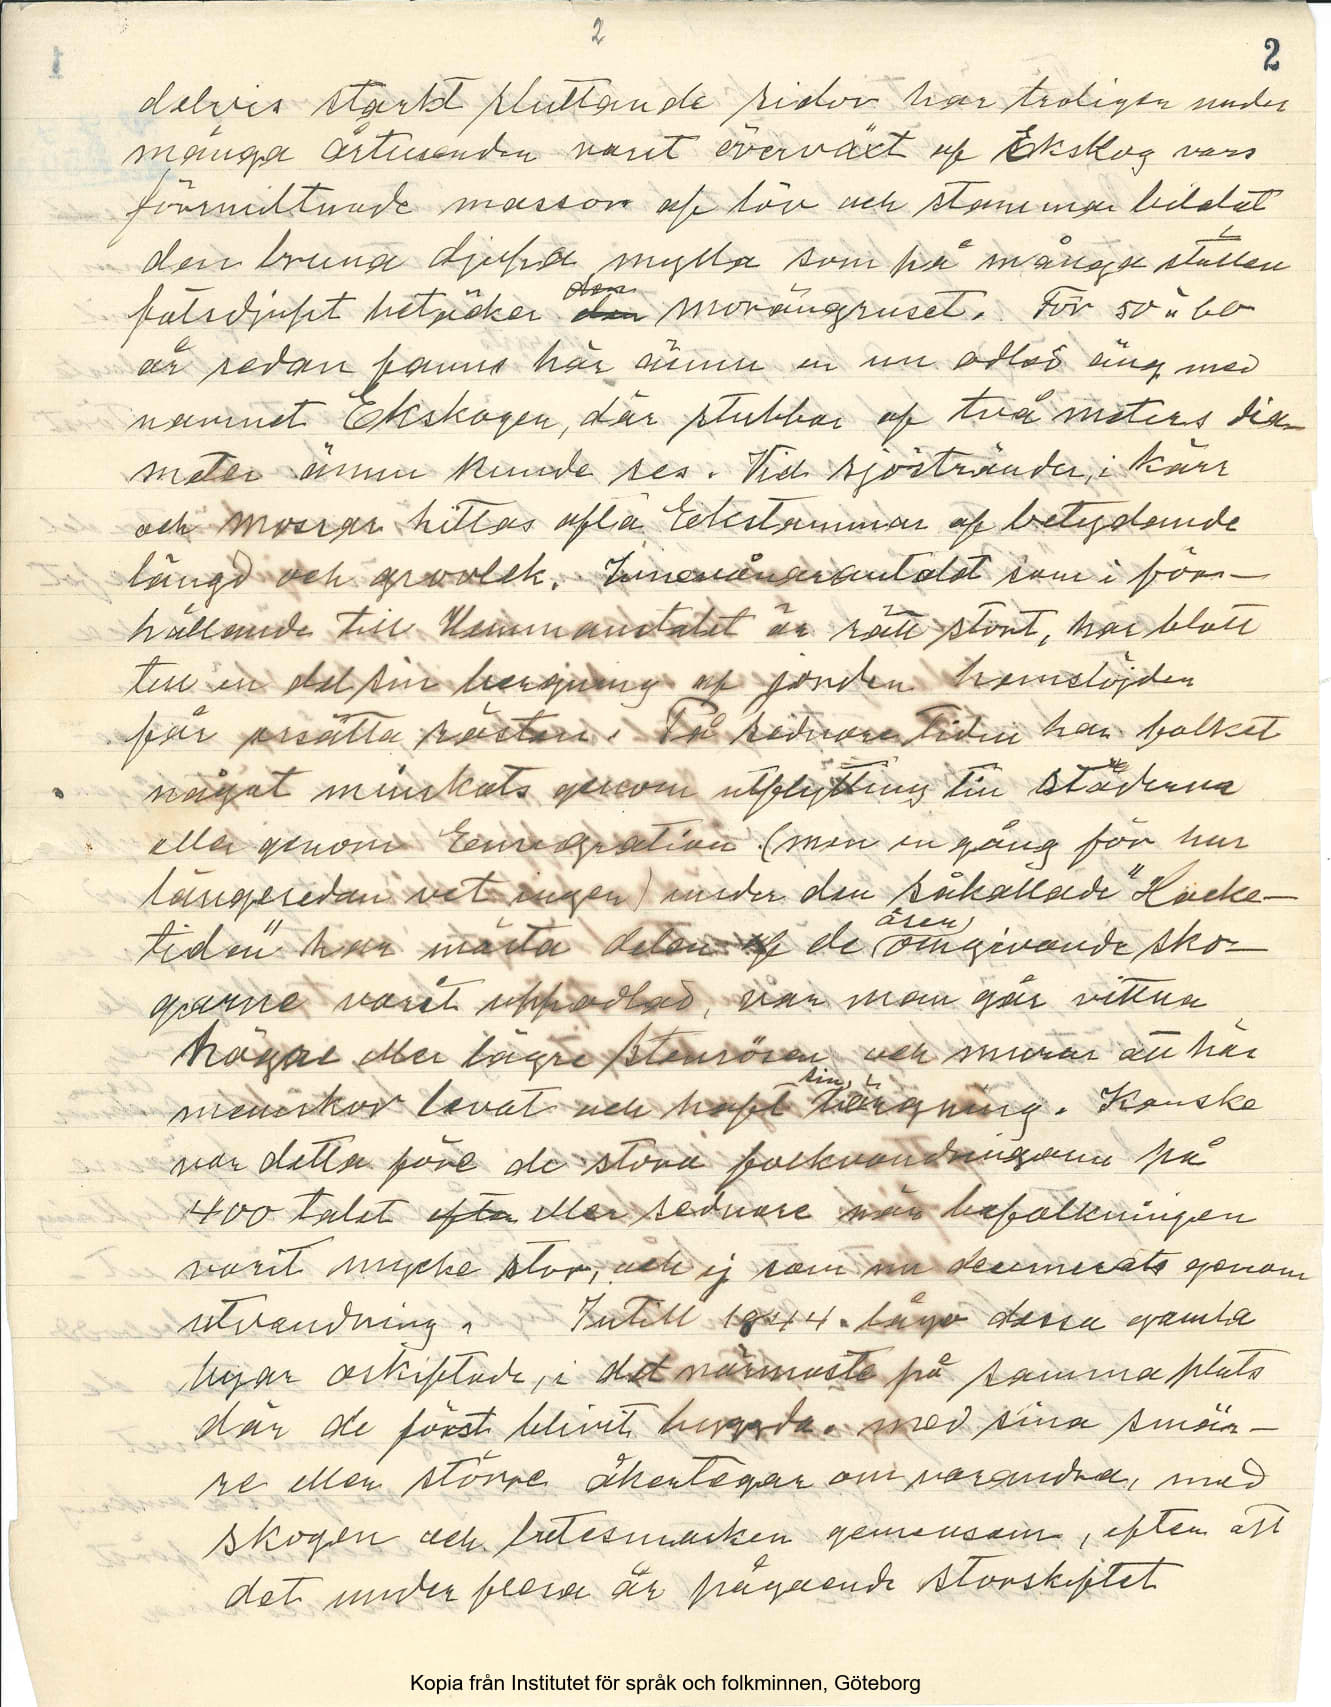 2
2
delvis starkt sluttande sidor har troligen under
många årtusenden varit överväxt af Ekskog vars
förmultnade massor af löv och stammar bildat
den bruna djupa mylla som på många ställen
fotsdjupt betäcker den morängruset. För 50 à 60
år sedan fanns här ännu en un odlad äng med
namnet Ekskogen, där stubbar af två meters dia-
meter ännu kunde ses. Vid sjöstränder, i kärr
och mossar hittas ofta Ekstammar af betydande
längd och grovlek. Innevånarantalet som i för-
hållande till Hemmantalet är rätt stort, har blott
till en del sin bergning af jorden hemslöjden
får ersätta résten. På sednare Tiden har folket
något minskats genom utflyttning till städerna
eller genom Emigration (men en gång för hur
längesedan vet ingen) under den såkallade "Hacke-
tiden" har mästa delen af de åsen omgivande sko-
garne varit uppodlad, var man går vittna
högre eller lägre stenrösen och murar att här
menskor levat och haft sin bärgning. Kanske
var detta före de stora folkvandringarna på
400 talet efter eller sednare när befolkningen
varit mycke stor, och ej som nu decimerats genom
utvandring. Intill 1844. lågo dessa gamla
byar oskiftade, i det närmaste på samma plats
där de först blivit byggda. med sina smär-
re eller större åkertegar om varandra, med
skogen och betesmarken gemensam, efter att
det under flera år pågående storskiftet
Kopia från Institutet för språk och folkminnen, Göteborg